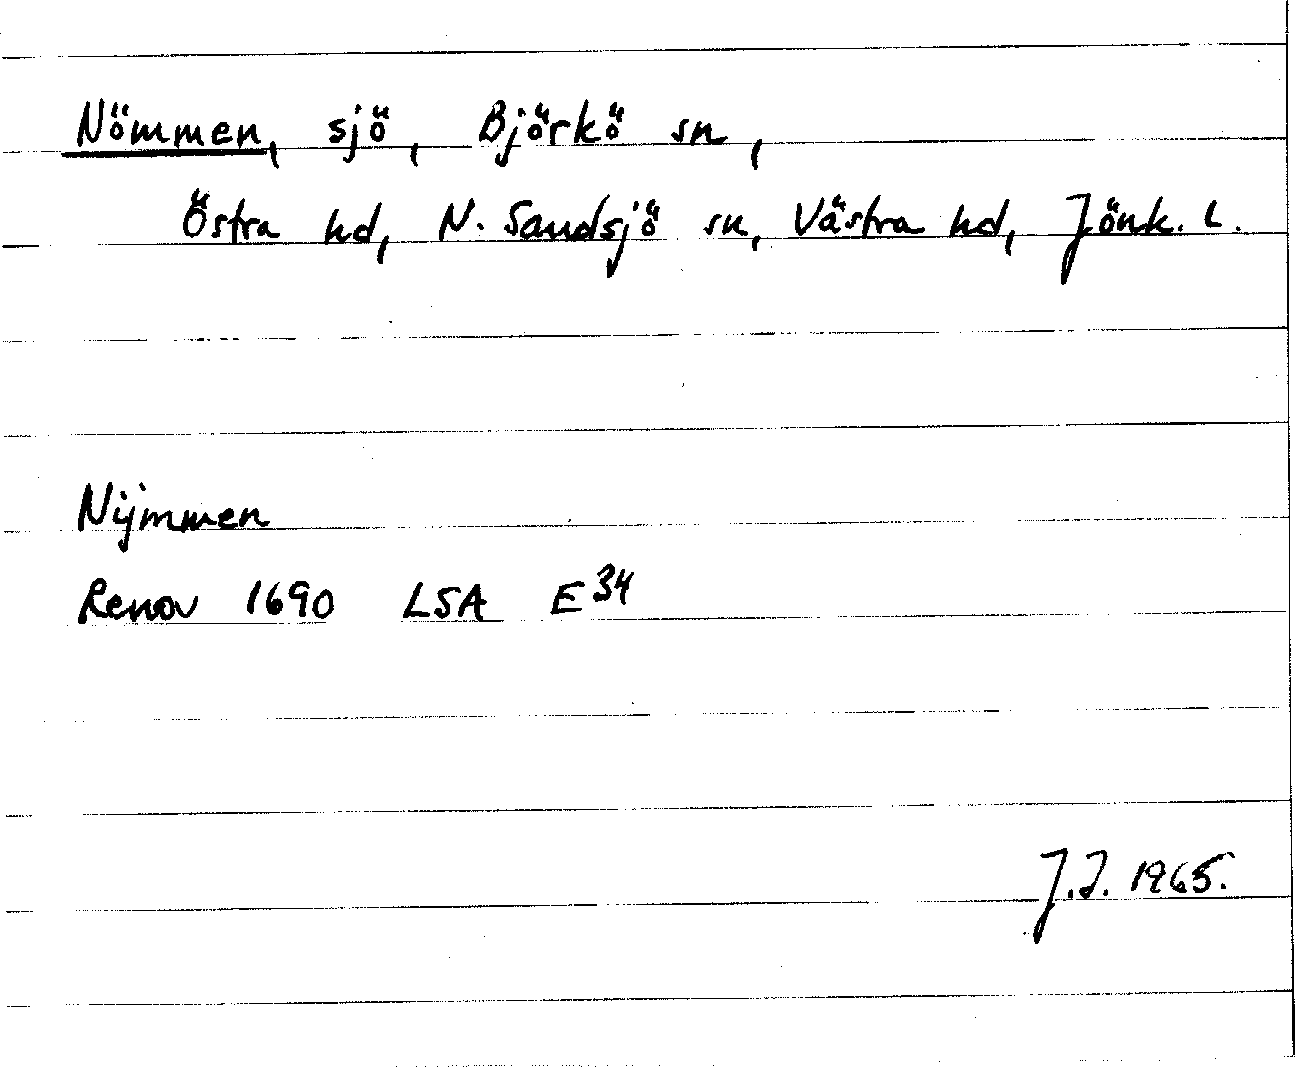 Nömmen, sjö, Björkö sn,
Östra hd, N. Sandsjö sn, Västra hd, Jönk. L.
Nijmmen
Renov 1690 LSA E34
J.I. 1965.